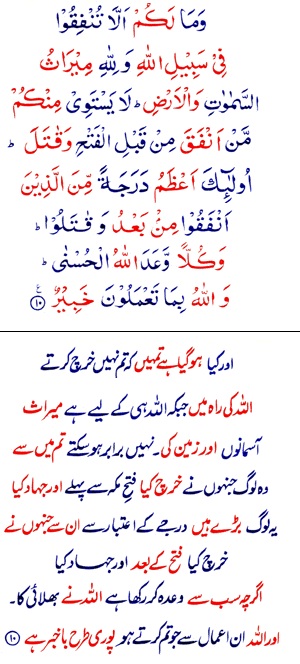 وَمَا لَكُمْ اَلَّا تُنْفِقُوْا
فِىْ سَبِيْلِ اللّٰهِ وَ لِلّٰهِ مِيْرَاثُ
السَّمٰوٰتِ وَ الْاَرْضِ ؕ لَا يَسْتَوِىْ مِنْكُمْ
مَّنْ اَنْفَقَ مِنْ قَبْلِ الْفَتْحِ وَ قٰتَلَ ؕ
اُولٰٓئِكَ اَعْظَمُ دَرَجَةً مِّنَ الَّذِيْنَ
اَنْفَقُوْا مِنْۢ بَعْدُ وَ قٰتَلُوْا ؕ
وَ كُلًّا وَّعَدَ اللّٰهُ الْحُسْنٰى ؕ
وَ اللّٰهُ بِمَا تَعْمَلُوْنَ خَبِيْرٌ ﴿۱۰﴾
اور کیا ہو گیا ہے تمہیں کہ تم نہیں خرچ کرتے
اللہ کی راہ میں جبکہ اللہ ہی کے لیے ہے میراث
آسمانوں اور زمین کی۔ نہیں برابر ہو سکتے تم میں سے
وہ لوگ جنہوں نے خرچ کیا فتحِ مکہ سے پہلے اور جہاد کیا
یہ لوگ بڑے ہیں درجے کے اعتبار سے ان سے جنہوں نے
خرچ کیا فتح کے بعد اور جہاد کیا
اگرچہ سب سے وعدہ کر رکھا ہے اللہ نے بھلائی کا۔
اور اللہ ان اعمال سے جو تم کرتے ہو پوری طرح با خبر ہے ﴿۱۰﴾